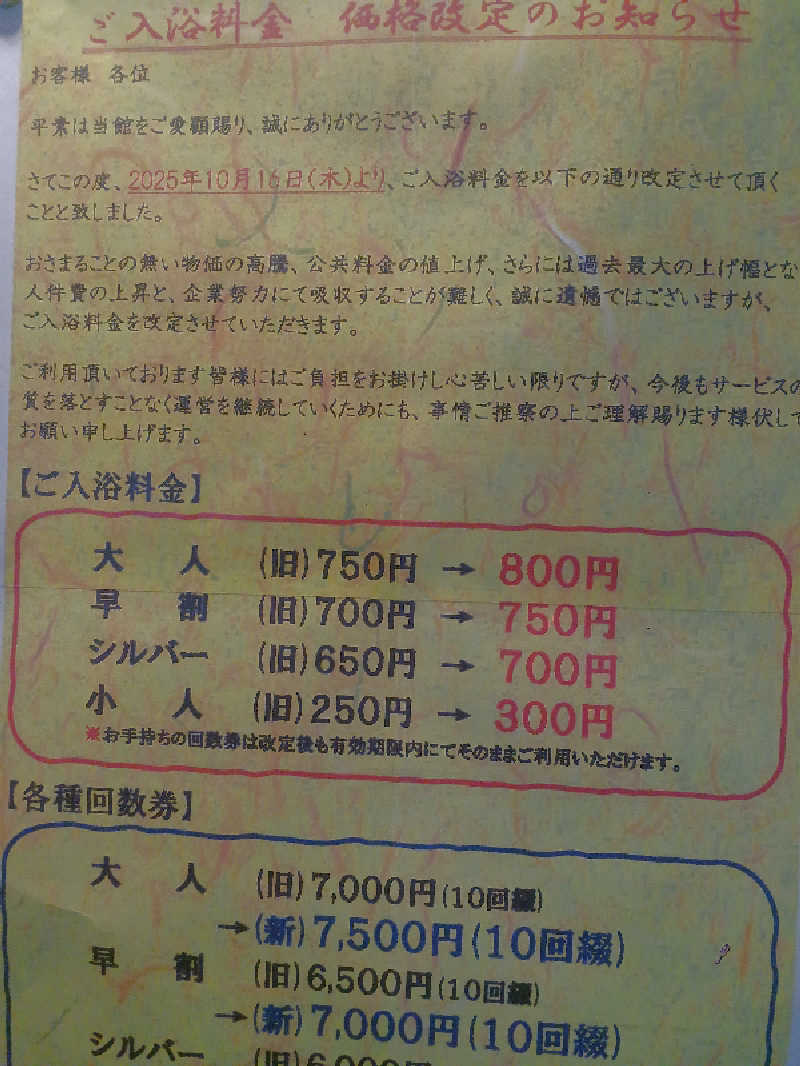 ご入浴料金 価格改定のお知らせ
お客様 各位
平素は当館をご愛顧賜り、誠にありがとうございます。
さてこの度、2025年10月16日(木)より、ご入浴料金を以下の通り改定させて頂く
ことと致しました。
おさまることの無い物価の高騰、公共料金の値上げ、さらには過去最大の上げ幅とな
人件費の上昇と、企業努力にて吸収することが難しく、誠に遺憾ではございますが、
ご入浴料金を改定させていただきます。
ご利用頂いております皆様にはご負担をお掛けし心苦しい限りですが、今後もサービスの
質を落とすことなく運営を継続していくためにも、事情ご推察の上ご理解賜ります様伏して
お願い申し上げます。
【ご入浴料金】
大人 (旧)750円 → 800円
早割 (旧)700円 → 750円
シルバー (旧)650円 → 700円
小人 (旧)250円 → 300円
※お手持ちの回数券は改定後も有効期限内にてそのままご利用いただけます。
【各種回数券】
大人 (旧)7,000円(10回綴)
→(新)7,500円(10回綴)
早割 (旧)6,500円(10回綴)
→(新)7,000円(10回綴)
シルバー (旧)6,000円